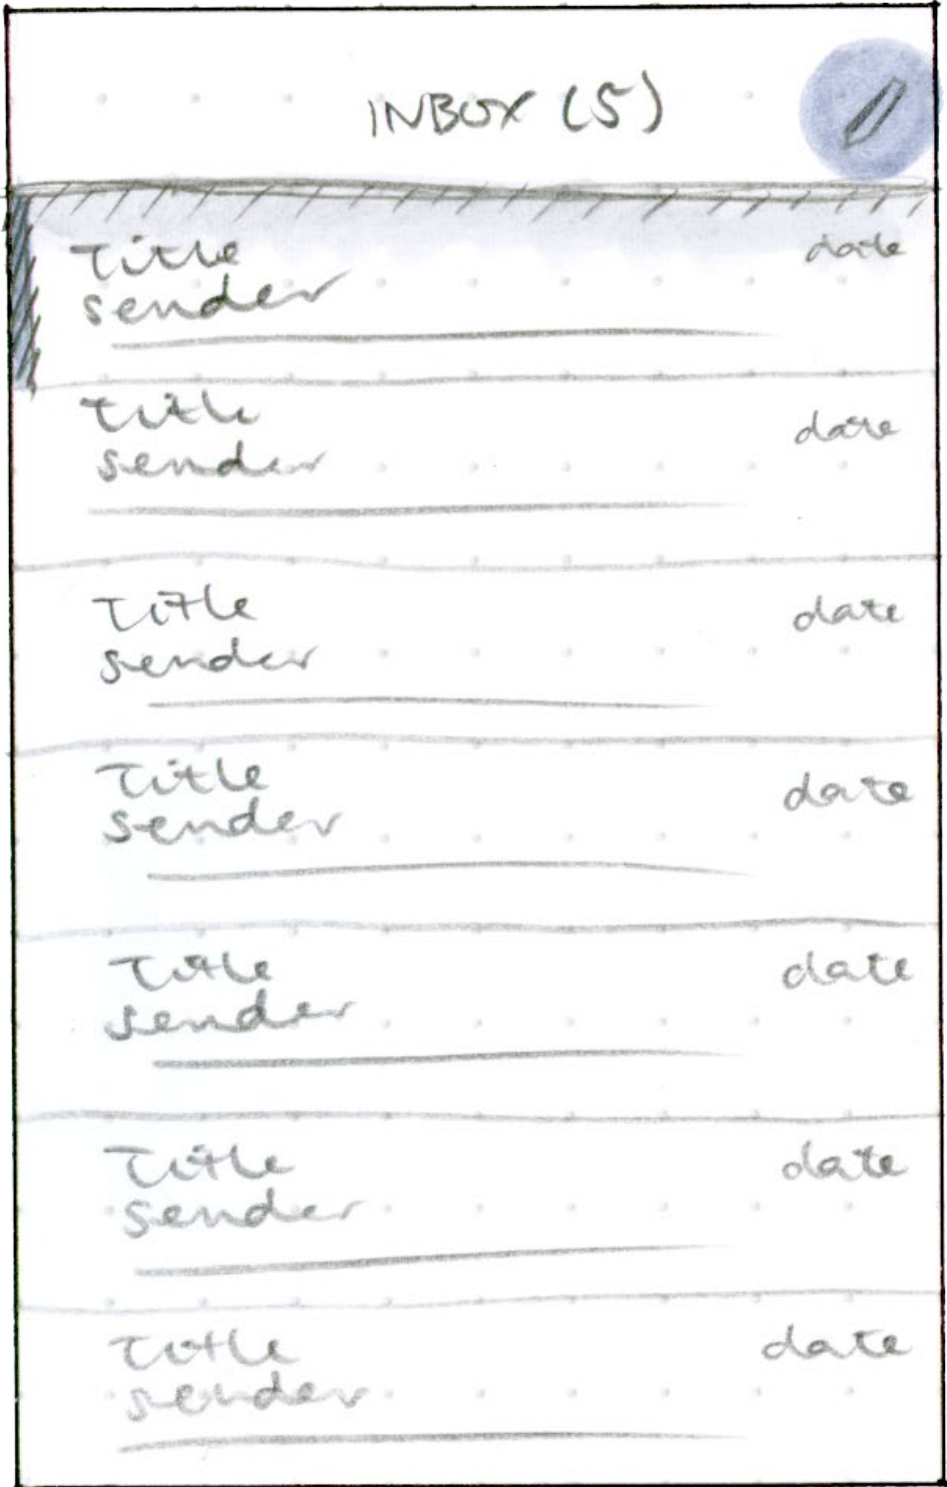 INBOX (5)
Title date
sender
Title date
sender
Title date
sender
Title date
sender
Title date
sender
Title date
sender
Title date
sender